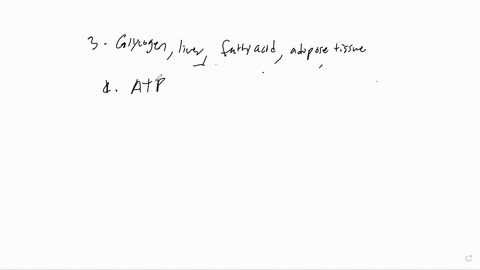 3. Glycogen, liver, fatty acid, adipose tissue
4. ATP